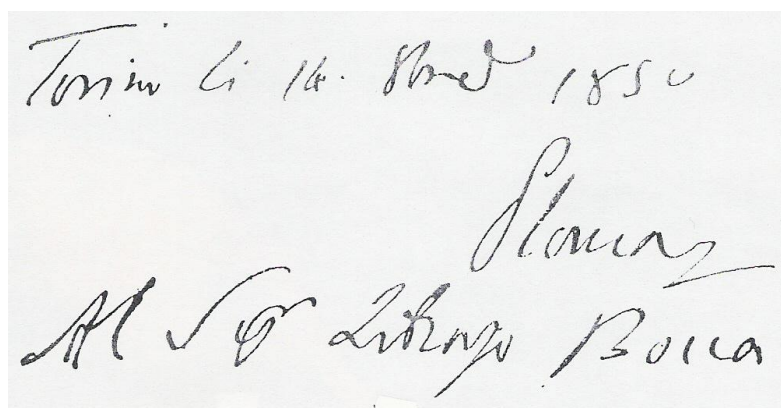 Torino li 14. 8bre 1850
Plana
Al Sigr Librajo Bocca